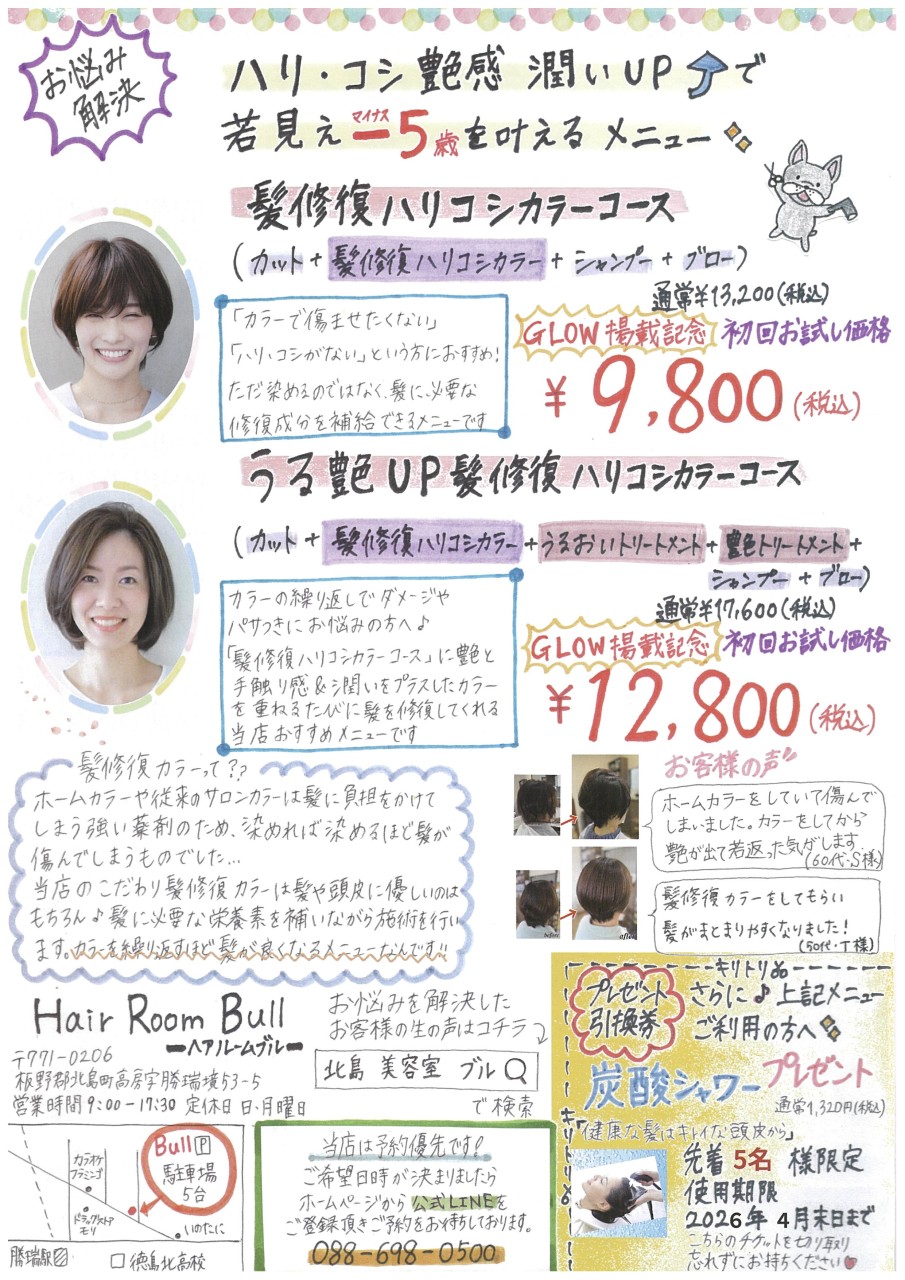 お悩み
解決
ハリ・コシ 艶感 潤いUPで
若見えマイナス5歳を叶えるメニュー
髪修復ハリコシカラーコース
(カット+髪修復ハリコシカラー+シャンプー+ブロー)
通常¥13,200(税込)
GLOW掲載記念 初回お試し価格
¥9,800(税込)
「カラーで傷ませたくない」
「ハリ、コシがない」という方におすすめ!
ただ染めるのではなく、髪に必要な
修復成分を補給できるメニューです
うる艶UP髪修復ハリコシカラーコース
(カット+髪修復ハリコシカラー+うるおいトリートメント+艶色トリートメント+
シャンプー+ブロー)
通常¥17,600(税込)
GLOW掲載記念 初回お試し価格
¥12,800(税込)
カラーの繰り返しでダメージや
パサつきにお悩みの方へ♪
「髪修復ハリコシカラーコース」に艶と
手触り感&潤いをプラスしたカラー
を重ねるたびに髪を修復してくれる
当店おすすめメニューです
髪修復カラーって??
ホームカラーや従来のサロンカラーは髪に負担をかけて
しまう強い薬剤のため、染めれば染めるほど髪が
傷んでしまうものでした...
当店のこだわり髪修復カラーは髪や頭皮に優しいのは
もちろん♪髪に必要な栄養素を補いながら施術を行い
ます。カラーを繰り返すほど髪が良くなるメニューなんです!!
お客様の声
ホームカラーをしていて傷んで
しまいました。カラーをしてから
艶が出て若返った気がします。
(60代・S様)
髪修復カラーをしてもらい
髪がまとまりやすくなりました!
(50代・T様)
before
after
Hair Room Bull
ーヘアルームブルー
〒771-0206
板野郡北島町高房字勝瑞境53-5
営業時間9:00-17:30 定休日 日、月曜日
お悩みを解決した
お客様の生の声はコチラ
北島 美容室 ブル
で検索
カラオケ
フラミンゴ
ドラッグストア
モリ
Bull P
駐車場
5台
いのたに
勝瑞駅
徳島北高校
当店は予約優先です!
ご希望日時が決まりましたら
ホームページから公式LINEを
ご登録頂きご予約をお待ちしております。
088-698-0500
キリトリ
プレゼント
引換券
さらに♪上記メニュー
ご利用の方へ
炭酸シャワープレゼント
通常1,320円(税込)
「健康な髪はキレイな頭皮から」
キリトリ
先着5名様限定
使用期限
2026年4月末日まで
こちらのチケットを切り取り
忘れずにお持ちください